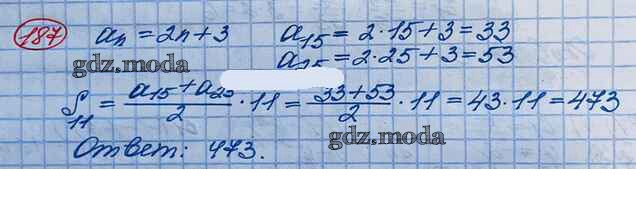 187 aₙ = 2n+3 a₁₅ = 2·15+3 = 33
a₂₅ = 2·25+3 = 53
gdz.moda
S₁₁ = (a₁₅+a₂₅)/2 · 11 = (33+53)/2 · 11 = 43·11 = 473
gdz.moda
Ответ: 473.